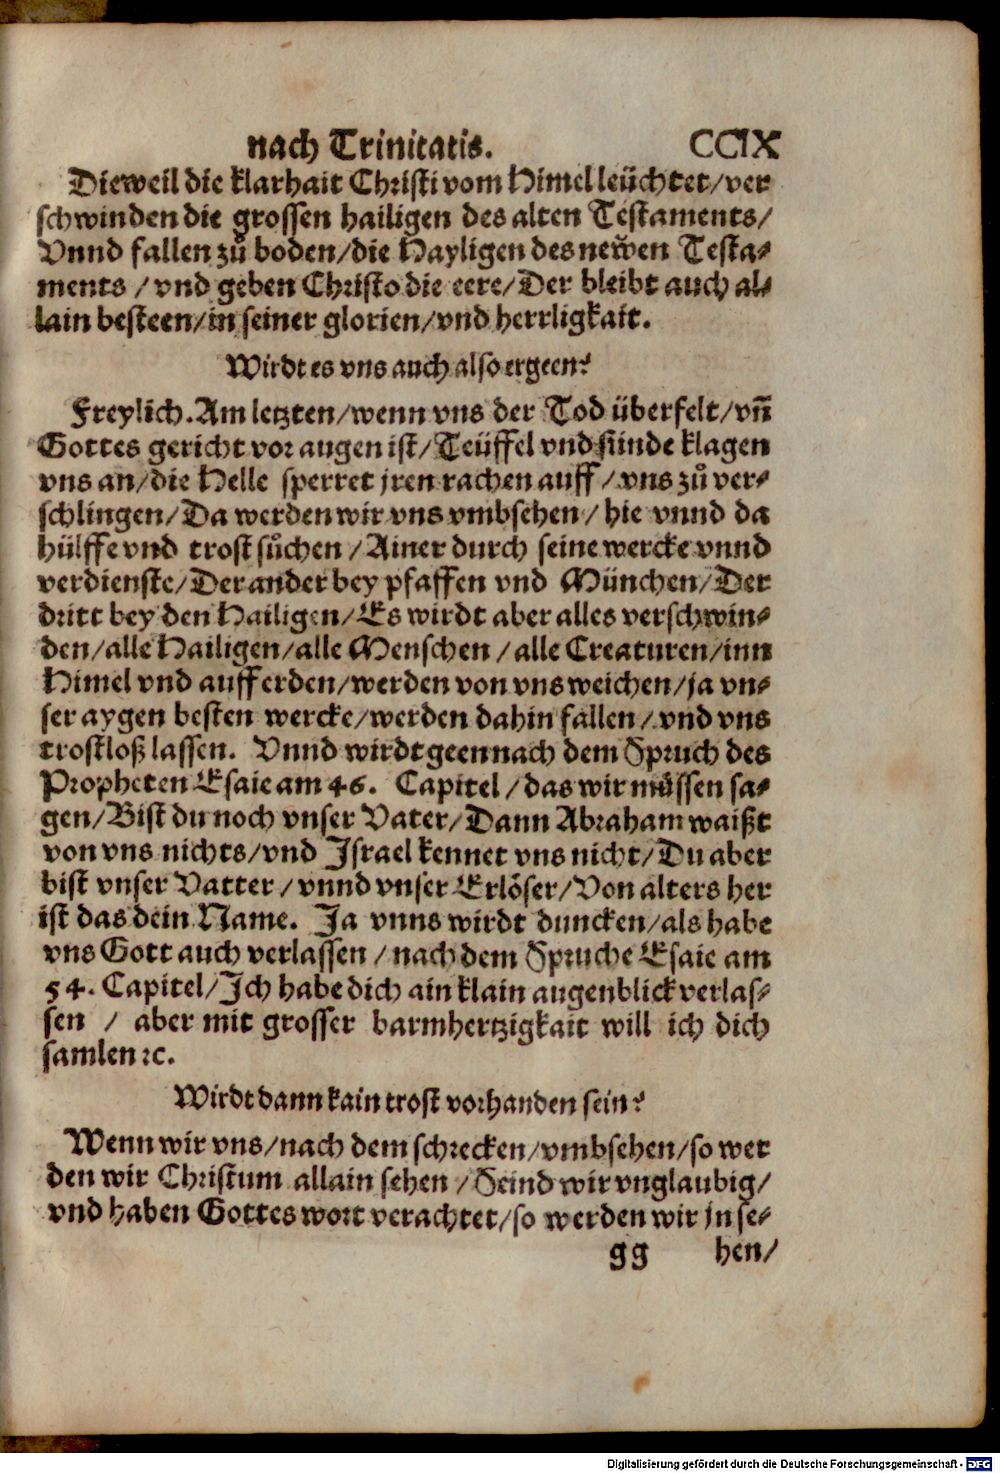 nach Trinitatis. CCIX
Dieweil die klarhait Christi vom Himel leüchtet/ver
schwinden die grossen hailigen des alten Testaments/
Vnnd fallen zů boden/die Hayligen des neẅen Testa-
ments / vnd geben Christo die eere/Der bleibt auch al-
lain besteen/in seiner glorien/vnd herrligkait.
Wirdt es vns auch also ergeen?
Freylich. Am letzten/wenn vns der Tod überfelt/vñ
Gottes gericht vor augen ist/Teüffel vnd sünde klagen
vns an/die Helle sperret jren rachen auff / vns zů ver-
schlingen/Da werden wir vns vmbsehen/ hie vnnd da
hülffe vnd trost sůchen / Ainer durch seine wercke vnnd
verdienste/Der ander bey pfaffen vnd München/Der
dritt bey den Hailigen/Es wirdt aber alles verschwin-
den/alle Hailigen/alle Menschen / alle Creaturen/inn
Himel vnd auff erden/werden von vns weichen/ja vn-
ser aygen besten wercke/werden dahin fallen/ vnd vns
trostloß lassen. Vnnd wirdt geen nach dem Spruch des
Propheten Esaie am 46. Capitel / das wir müssen sa-
gen/Bist du noch vnser Vater/Dann Abraham waißt
von vns nichts/vnd Israel kennet vns nicht/Du aber
bist vnser Vatter / vnnd vnser Erlöser/Von alters her
ist das dein Name. Ja vnns wirdt duncken/als habe
vns Gott auch verlassen / nach dem Spruche Esaie am
54. Capitel/Ich habe dich ain klain augenblick verlas-
sen / aber mit grosser barmhertzigkait will ich dich
samlen ꝛc.
Wirdt dann kain trost vorhanden sein?
Wenn wir vns/nach dem schrecken/vmbsehen/so wer
den wir Christum allain sehen / Seind wir vnglaubig/
vnd haben Gottes wort verachtet/so werden wir jn se-
gg hen/
Digitalisierung gefördert durch die Deutsche Forschungsgemeinschaft - DFG